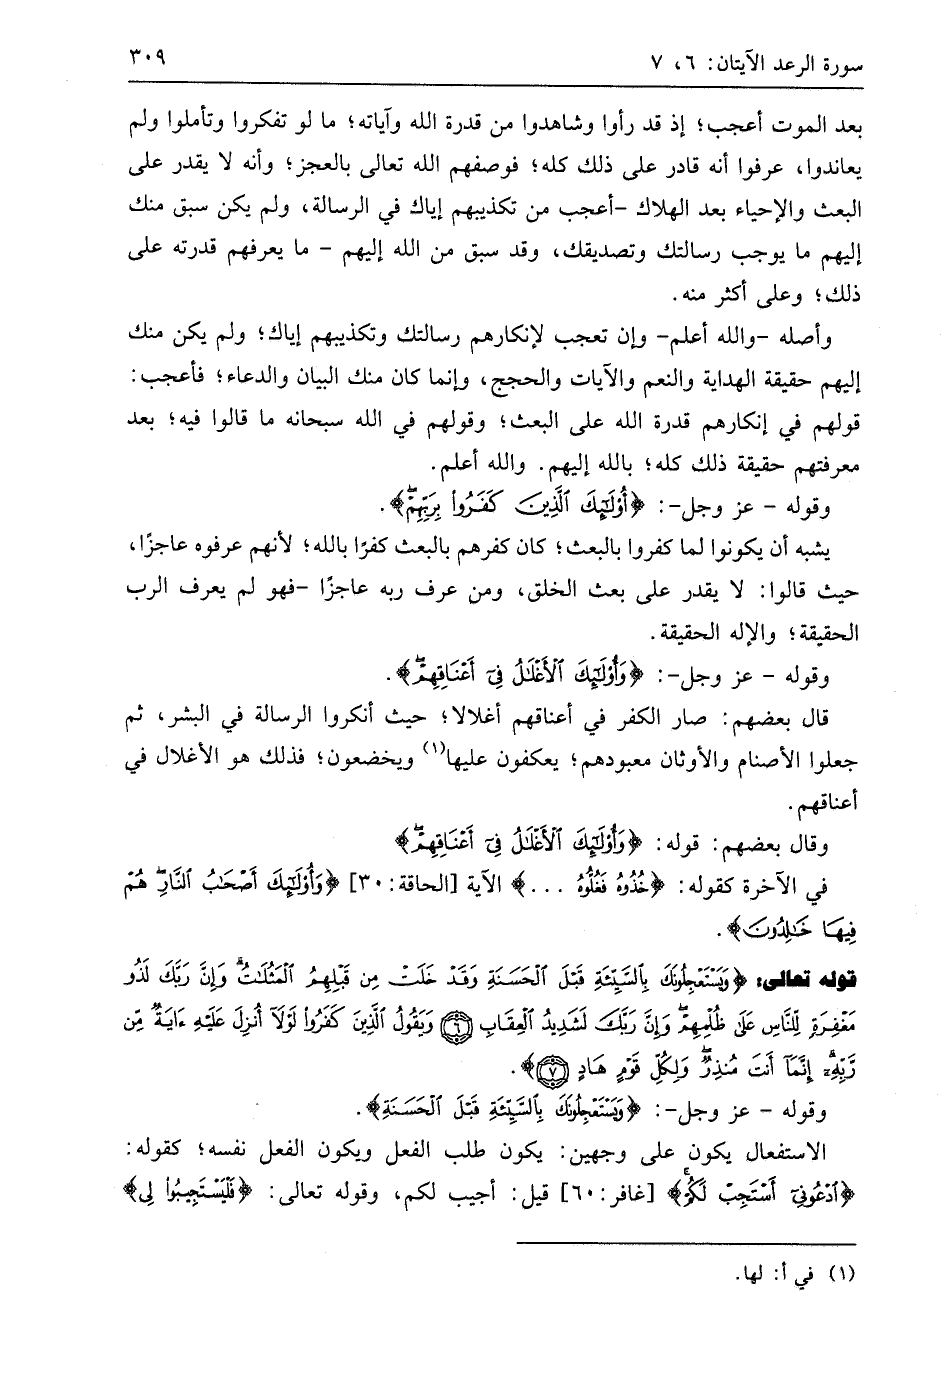 سورة الرعد الآيتان: ٦، ٧
٣٠٩
بعد الموت أعجب؛ إذ قد رأوا وشاهدوا من قدرة الله وآياته؛ ما لو تفكروا وتأملوا ولم
يعاندوا، عرفوا أنه قادر على ذلك كله؛ فوصفهم الله تعالى بالعجز؛ وأنه لا يقدر على
البعث والإحياء بعد الهلاك -أعجب من تكذيبهم إياك في الرسالة، ولم يكن سبق منك
إليهم ما يوجب رسالتك وتصديقك، وقد سبق من الله إليهم - ما يعرفهم قدرته على
ذلك؛ وعلى أكثر منه.
وأصله -والله أعلم- وإن تعجب لإنكارهم رسالتك وتكذيبهم إياك؛ ولم يكن منك
إليهم حقيقة الهداية والنعم والآيات والحجج، وإنما كان منك البيان والدعاء؛ فأعجب:
قولهم في إنكارهم قدرة الله على البعث؛ وقولهم في الله سبحانه ما قالوا فيه؛ بعد
معرفتهم حقيقة ذلك كله؛ بالله إليهم. والله أعلم.
وقوله - عز وجل-: ﴿أُوْلَٰٓئِكَ ٱلَّذِينَ كَفَرُواْ بِرَبِّهِمْۖ﴾.
يشبه أن يكونوا لما كفروا بالبعث؛ كان كفرهم بالبعث كفرًا بالله؛ لأنهم عرفوه عاجزًا،
حيث قالوا: لا يقدر على بعث الخلق، ومن عرف ربه عاجزًا -فهو لم يعرف الرب
الحقيقة؛ والإله الحقيقة.
وقوله - عز وجل-: ﴿وَأُوْلَٰٓئِكَ ٱلْأَغْلَٰلُ فِىٓ أَعْنَاقِهِمْۖ﴾.
قال بعضهم: صار الكفر في أعناقهم أغلالا؛ حيث أنكروا الرسالة في البشر، ثم
جعلوا الأصنام والأوثان معبودهم؛ يعكفون عليها(١) ويخضعون؛ فذلك هو الأغلال في
أعناقهم.
وقال بعضهم: قوله: ﴿وَأُوْلَٰٓئِكَ ٱلْأَغْلَٰلُ فِىٓ أَعْنَاقِهِمْۖ﴾
في الآخرة كقوله: ﴿خُذُوهُ فَغُلُّوهُ ...﴾ الآية [الحاقة: ٣٠] ﴿وَأُوْلَٰٓئِكَ أَصْحَٰبُ ٱلنَّارِۖ هُمْ
فِيهَا خَٰلِدُونَ﴾.
قوله تعالى: ﴿وَيَسْتَعْجِلُونَكَ بِٱلسَّيِّئَةِ قَبْلَ ٱلْحَسَنَةِ وَقَدْ خَلَتْ مِن قَبْلِهِمُ ٱلْمَثُلَٰتُۗ وَإِنَّ رَبَّكَ لَذُو
مَغْفِرَةٍ لِّلنَّاسِ عَلَىٰ ظُلْمِهِمْۖ وَإِنَّ رَبَّكَ لَشَدِيدُ ٱلْعِقَابِ ٦ وَيَقُولُ ٱلَّذِينَ كَفَرُواْ لَوْلَآ أُنزِلَ عَلَيْهِ ءَايَةٌ مِّن
رَّبِّهِۦٓۗ إِنَّمَآ أَنتَ مُنذِرٌۖ وَلِكُلِّ قَوْمٍ هَادٍ ٧﴾.
وقوله - عز وجل-: ﴿وَيَسْتَعْجِلُونَكَ بِٱلسَّيِّئَةِ قَبْلَ ٱلْحَسَنَةِ﴾.
الاستفعال يكون على وجهين: يكون طلب الفعل ويكون الفعل نفسه؛ كقوله:
﴿ٱدْعُونِىٓ أَسْتَجِبْ لَكُمْۚ﴾ [غافر: ٦٠] قيل: أجيب لكم، وقوله تعالى: ﴿فَلْيَسْتَجِيبُواْ لِى﴾
(١) في أ: لها.